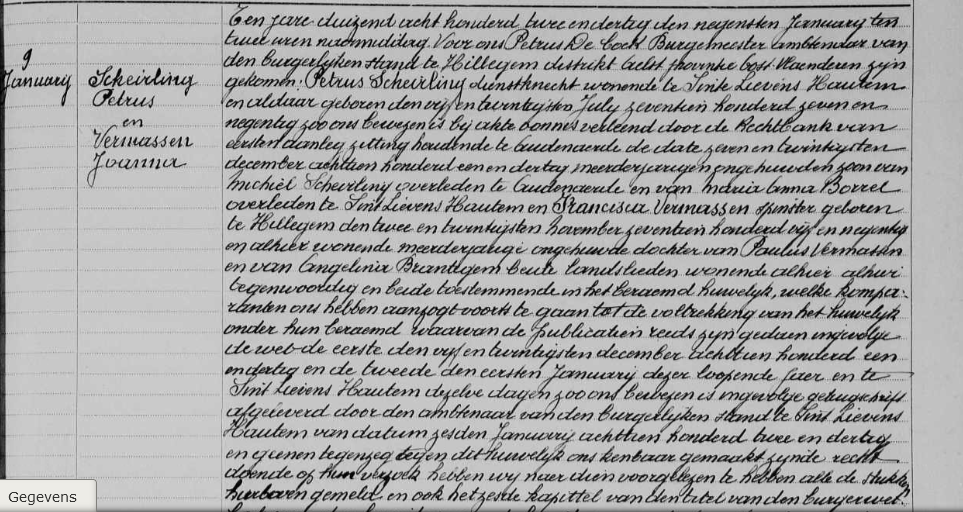 9
January
Scheirling
Petrus
en
Vermassen
Joanna
Ten jare duizend acht honderd twee endertig den negensten January ten
twee uren naermiddag. Voor ons Petrus De Cock Burgemeester ambtenaar van
den burgerlyken stand te Hillegem distrikt Aelst provintie Oost Vlaenderen zyn
gekomen: Petrus Scheirling dienstknecht wonende te Sint Lievens Hautem
en aldaer geboren den vyf en twintigsten July zeventien honderd zeven en
negentig zoo ons bewezen is by akte vonnis verleend door de Rechtbank van
eersten aanleg zitting houdende te Audenaerde de date zeven en twintigsten
december achttien honderd een en dertag meerderjarigen ongehuwden zoon van
Michiel Scheirling overleden te Audenaerde en van Maria Anna Borrel
overleden te Sint Lievens Hautem en Francisca Vermassen spinster geboren
te Hillegem den twee en twintigsten november zeventien honderd vyf en negentig
en alhier wonende meerderjarige ongehuwde dochter van Paulus Vermassen
en van Angelina Brantegem beide landslieden wonende alhier alhier
tegenwoordig en beide toestemmende in het beraemd huwelyk, welke kompa-
ranten ons hebben aanzogt voorts te gaan tot de voltrekking van het huwelyk
onder hun beraemd waarvan de publicatien reeds zyn gedaen ingevolge
de wet de eerste den vyf en twintigsten december achttien honderd een
endertig en de tweede den eersten January dezer loopende jaer en te
Sint Lievens Hautem dezelve dagen zoo ons bewezen is ingevolge getuigschrift
afgeleverd door den ambtenaar van den burgerlyken stand te Sint Lievens
Hautem van datum zesden January achttien honderd twee en dertag
en geenen tegenzeg tegen dit huwelyk ons kenbaar gemaakt zynde recht
doende op hun verzoek hebben wy naer dien voorgelezen te hebben alle de stukken
hierboven gemeld en ook het zesde kapittel van den titel van den burgerwet
Gegevens